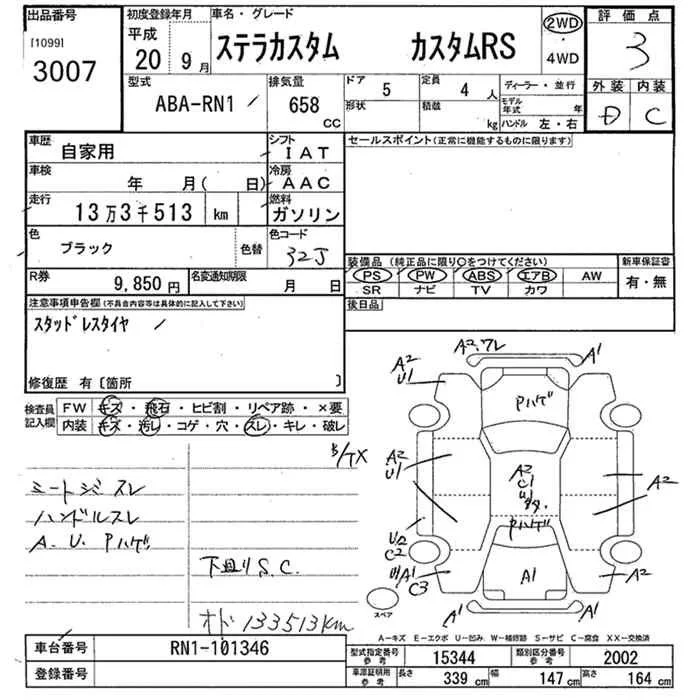 出品番号
[1099]
3007
初度登録年月
平成
20 9月
車名・グレード
ステラカスタム カスタムRS
2WD
・
4WD
評価点
3
外装 内装
D C
型式
ABA-RN1
排気量
658
CC
ドア 5
定員 4 人
形状
積載 kg
ディーラー・並行
モデル年式 年
ハンドル 左・右
車歴
自家用
シフト
IAT
車検
年 月( 日)
冷房
AAC
走行
13万3千513 km
燃料
ガソリン
色
ブラック
色替
色コード
32J
R券
9,850円
名変通知期限
月 日
セールスポイント(正常に機能するものに限ります)
装備品(純正品に限り○をつけてください)
新車保証書
PS PW ABS エアB AW
SR ナビ TV カワ
有・無
後日品
注意事項申告欄(不具合内容等は具体的に記入して下さい)
スタッドレスタイヤ
修復歴 有〔箇所 〕
検査員
記入欄
FW キズ・飛石・ヒビ割・リペア跡・×要
内装 キズ・汚レ・コゲ・穴・スレ・キレ・破レ
シートジミ スレ
ハンドルスレ
A. U. Pハゲ
下廻りS.C.
オド 133513km
A2.ワレ
A1
A2
U1
Pハゲ
A2
U1
A2
C1
U1
多々
Pハゲ
A2
U2
C2
U1/A1
C3
A1
A2
A1
A1
スペア
A－キズ E－エクボ U－凹み W－補修跡 S－サビ C－腐食 XX－交換済
車台番号
RN1-101346
登録番号
型式指定番号
参考
15344
類別区分番号
参考
2002
車庫証明用
参考
長さ 339 cm
幅 147 cm
高さ 164 cm